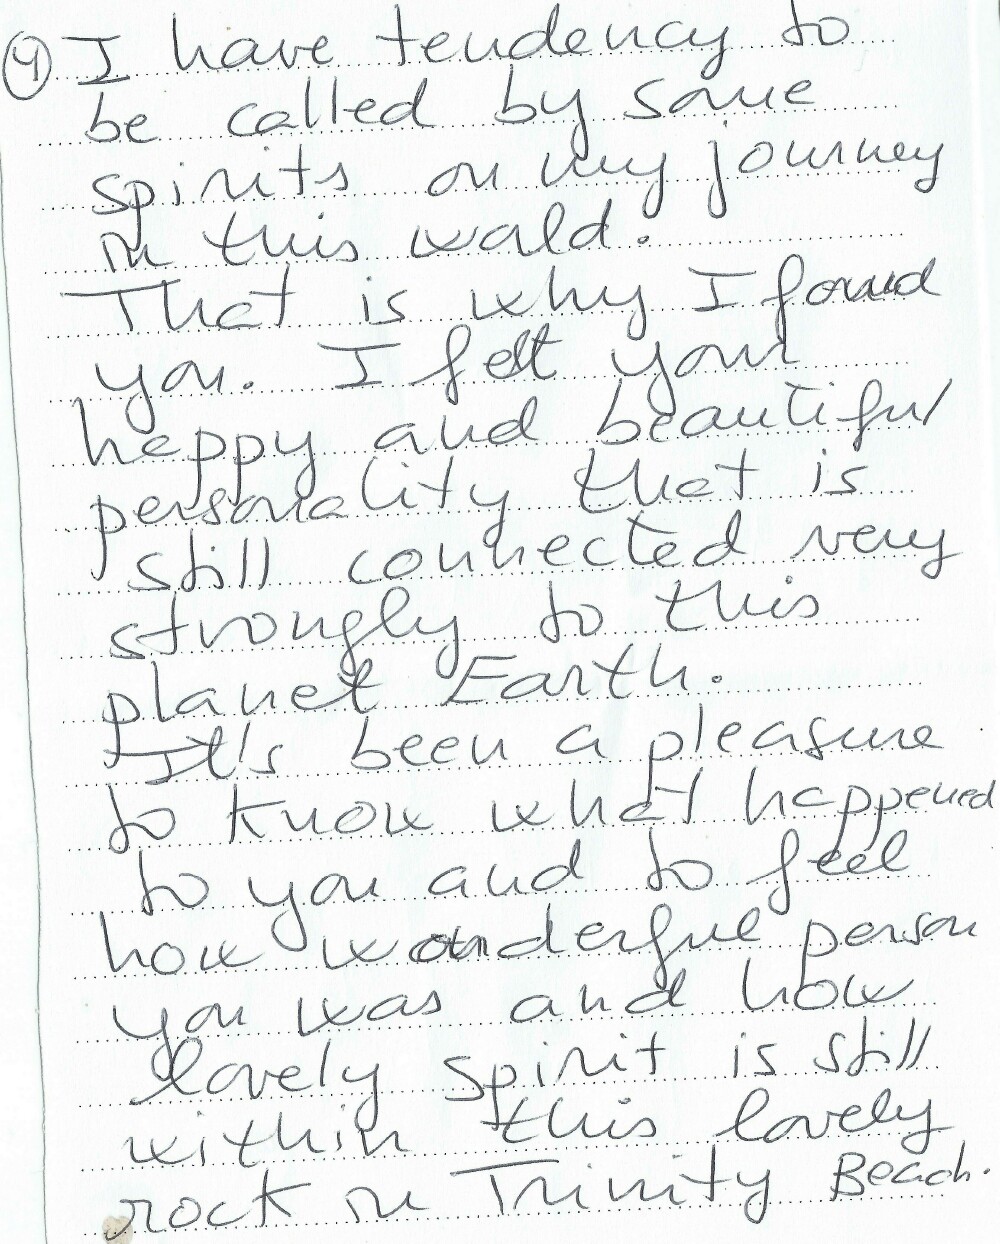 ④ I have tendency to
be called by some
spirits on my journey
in this world.
That is why I found
you. I felt your
happy and beautiful
personality that is
still connected very
strongly to this
planet Earth.
It's been a pleasure
to know what happened
to you and to feel
how wonderful person
you was and how
lovely spirit is still
within this lovely
rock in Trinity Beach.